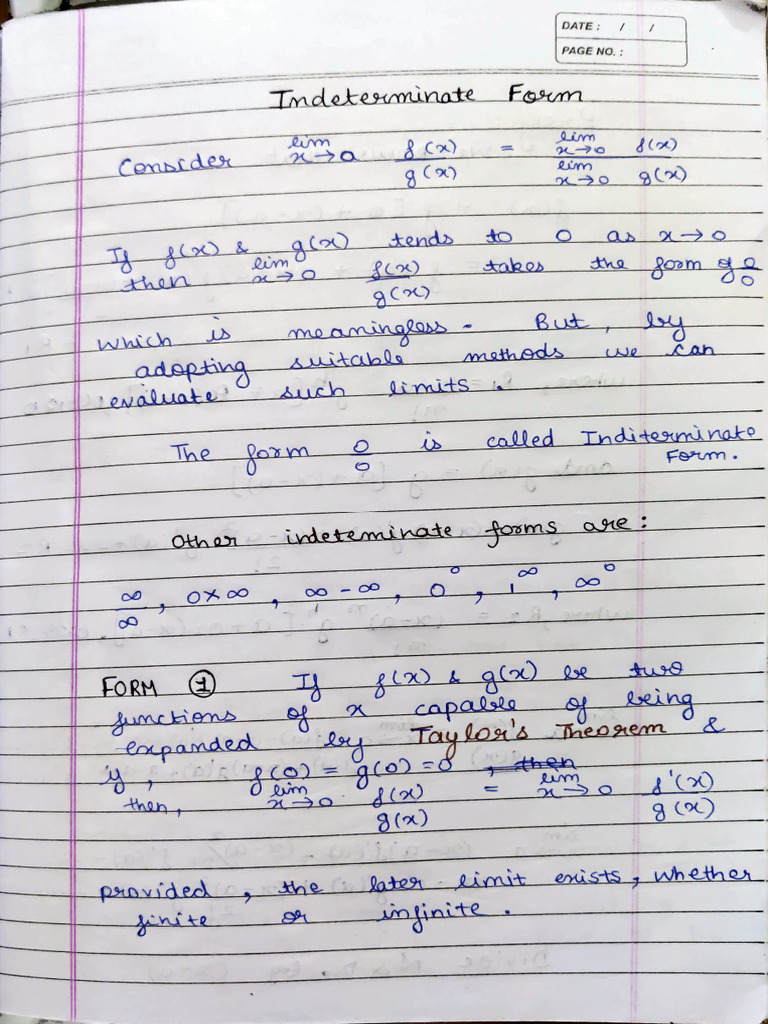 DATE : / /
PAGE NO. :
Indeterminate Form
Consider lim x→0 f(x)/g(x) = lim x→0 f(x) / lim x→0 g(x)
If f(x) & g(x) tends to 0 as x→0
then lim x→0 f(x)/g(x) takes the form 0/0
which is meaningless. But, by
adopting suitable methods we can
evaluate such limits.
The form 0/0 is called Inditerminate
Form.
Other indeteminate forms are:
∞/∞, 0×∞, ∞-∞, 0⁰, 1^∞, ∞⁰
FORM ① If f(x) & g(x) be two
functions of x capable of being
expanded by Taylor's Theorem &
if, f(0) = g(0) = 0, then
then, lim x→0 f(x)/g(x) = lim x→0 f'(x)/g(x)
provided, the later limit exists, whether
finite or infinite.